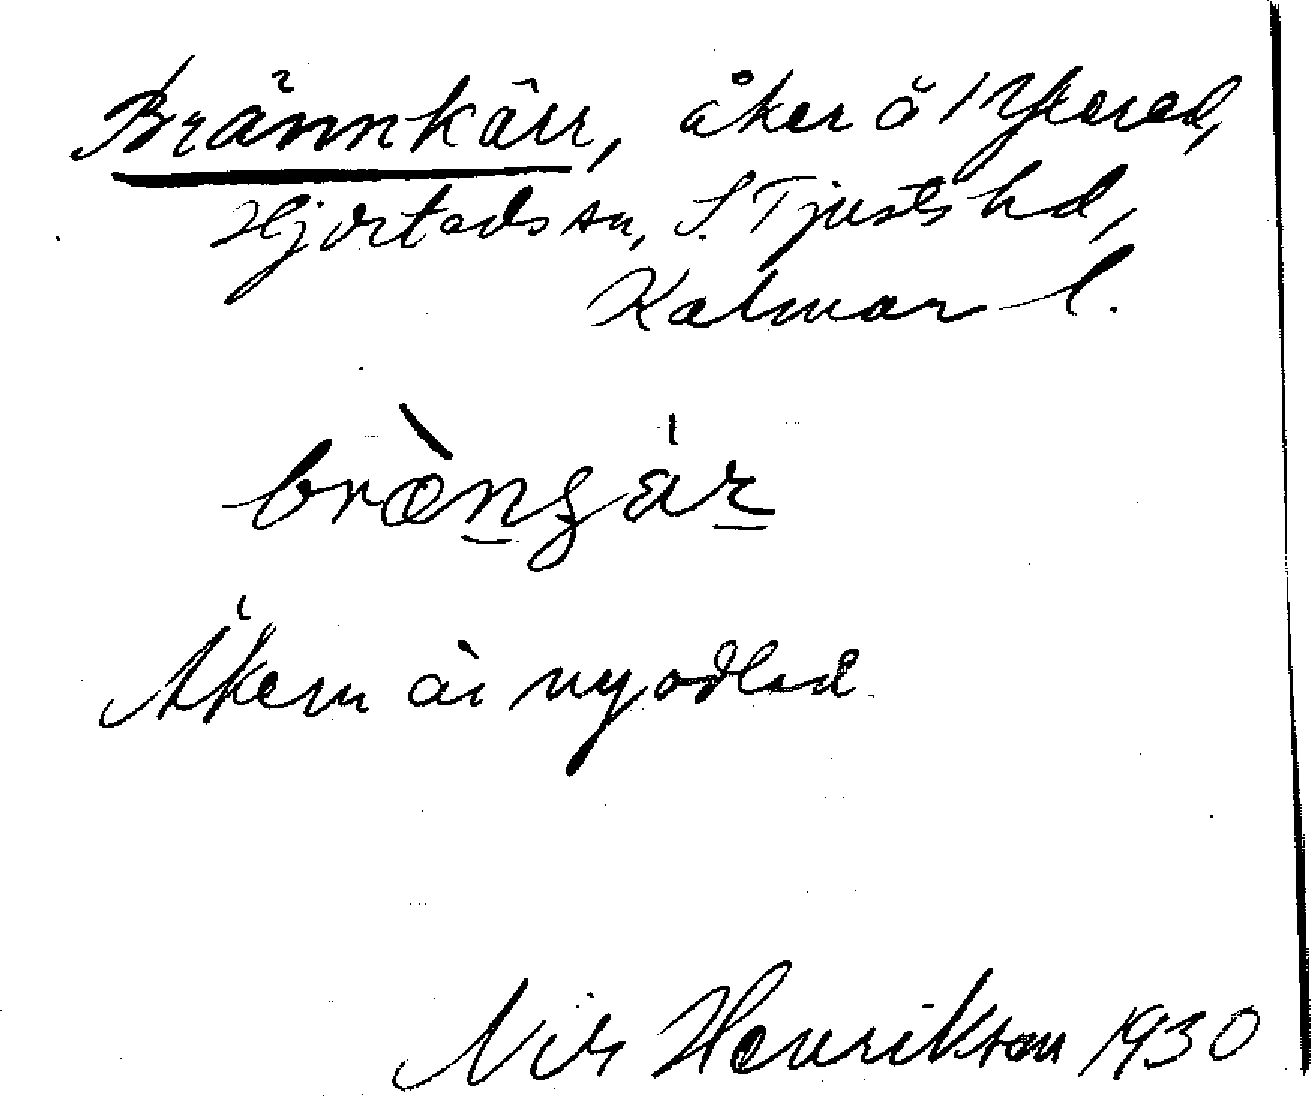 Brännkärr, åker å 1 Yxered,
Hjorteds sn, S. Tjusts hd,
Kalmar l.
brængär
Åkern är nyodlad
Nils Henrikson 1930